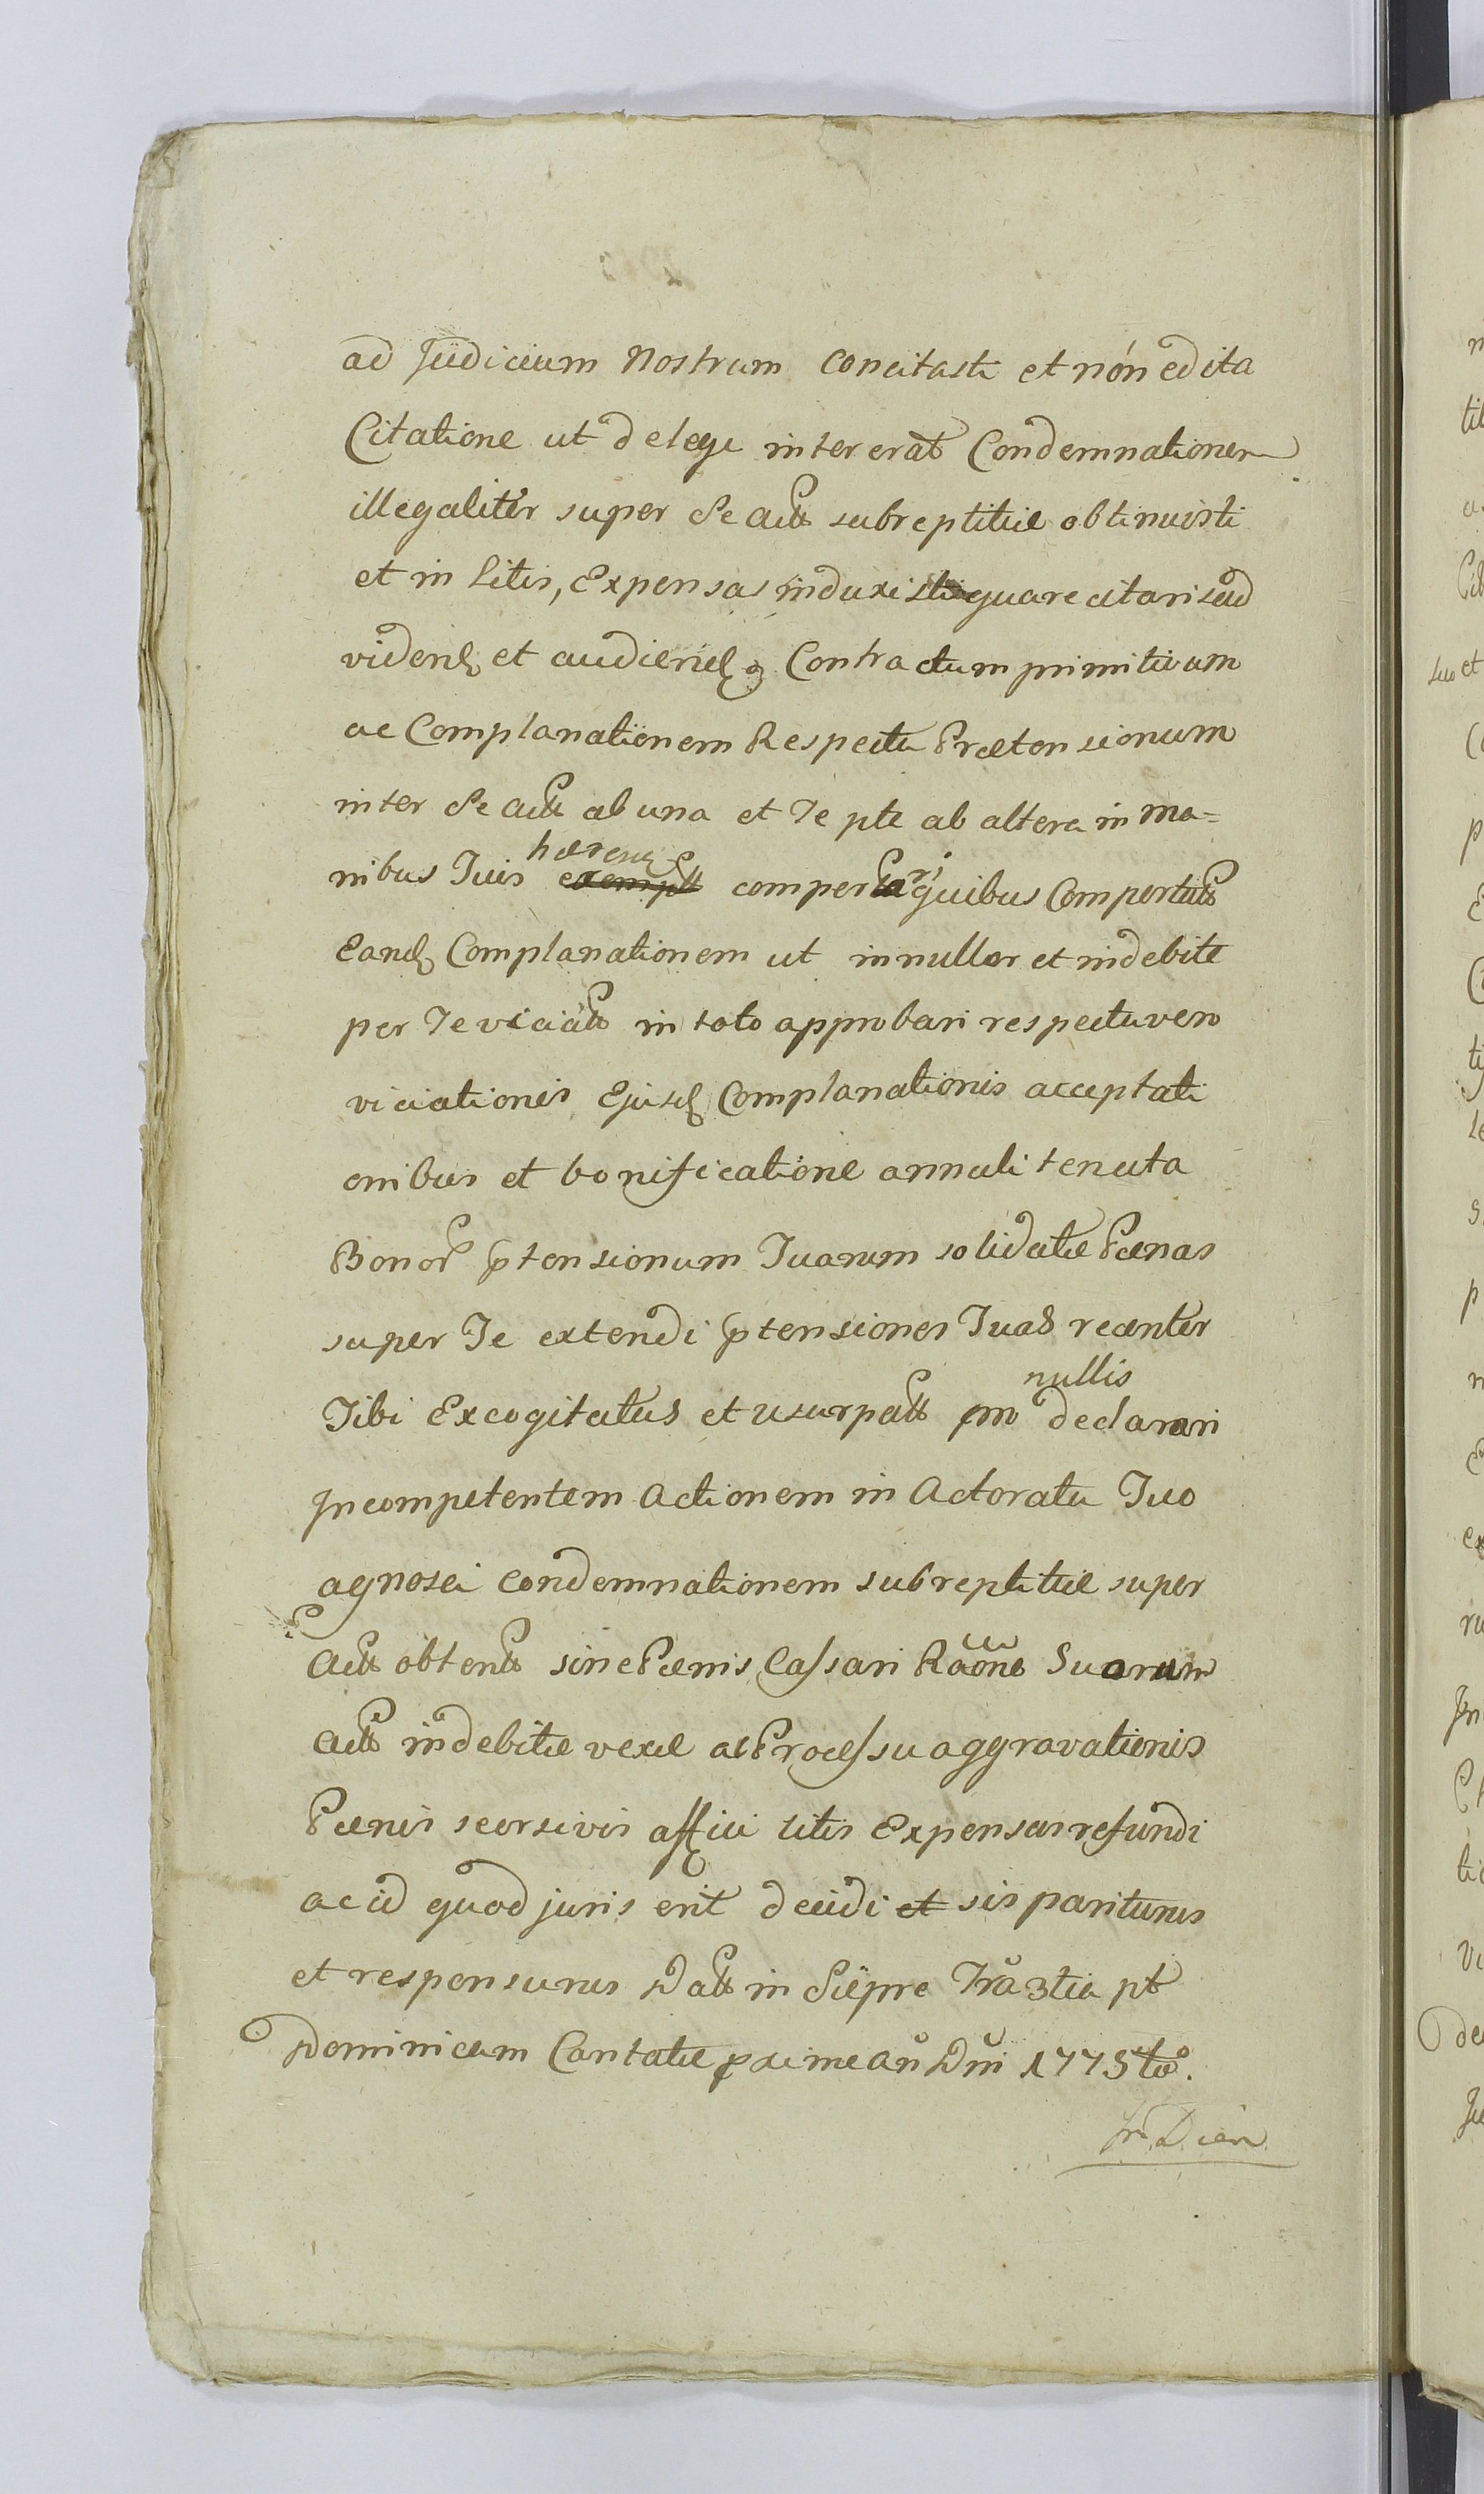 ad Judicium Nostrum concitasti et nón edita
Citatione ut de lege intererat Condemnationem
illegaliter super Se Actt subreptitie obtinuisti
et in Litis, Expensas induxisti quare citaris ad
vidend et audiend Contractum primitivum
ac Complanationem Respectu Prætensionum
inter Se Actt ab una et Te pte ab altera in ma=
nibus Tuis hæren
comport quibus Comportatt
Eand Complanationem ut in nullo et indebite
per Te viciatt in toto approbari respectu vero
viciationis Ejusd Complanationis acceptati
onibus et bonificatione annuli tenuta
Bonor ptensionum Tuarum solidatæ Pænas
super Te extendi ptensiones Tuas recenter
Tibi Excogitatas et usurpatt pro nullis declarari
Incompetentem Actionem in Actoratu Tuo
agnosci condemnationem subreptitie super
Actt obtentt sine Pænis Cassari Raone Suarum
Actt indebitæ vexæ ac Processu aggravationis
Pænis seorsivis affici litis Expensas refundi
ac id quod juris erit decidi et sis pariturus
et responsurus Datt in Siepre Fra 3tia pt
Dominicam Cantate pxime An Dni 1775to.